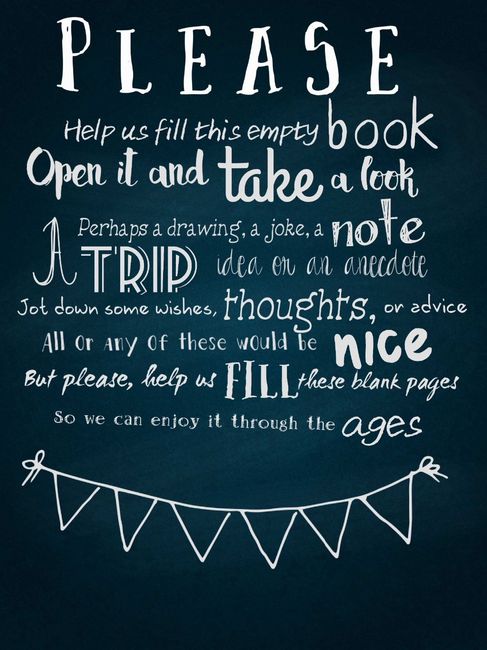 PLEASE
Help us fill this empty book
Open it and take a look
Perhaps a drawing, a joke, a note
A TRIP idea or an anecdote
Jot down some wishes, thoughts, or advice
All or any of these would be nice
But please, help us FILL these blank pages
So we can enjoy it through the ages